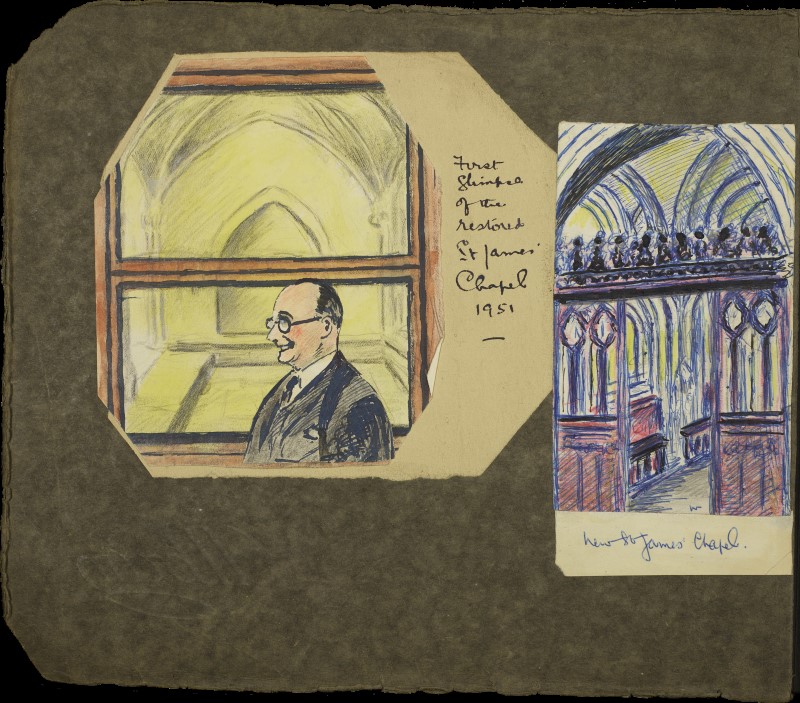 First
Glimpse
of the
restored
St James'
Chapel
1951
New St James' Chapel.